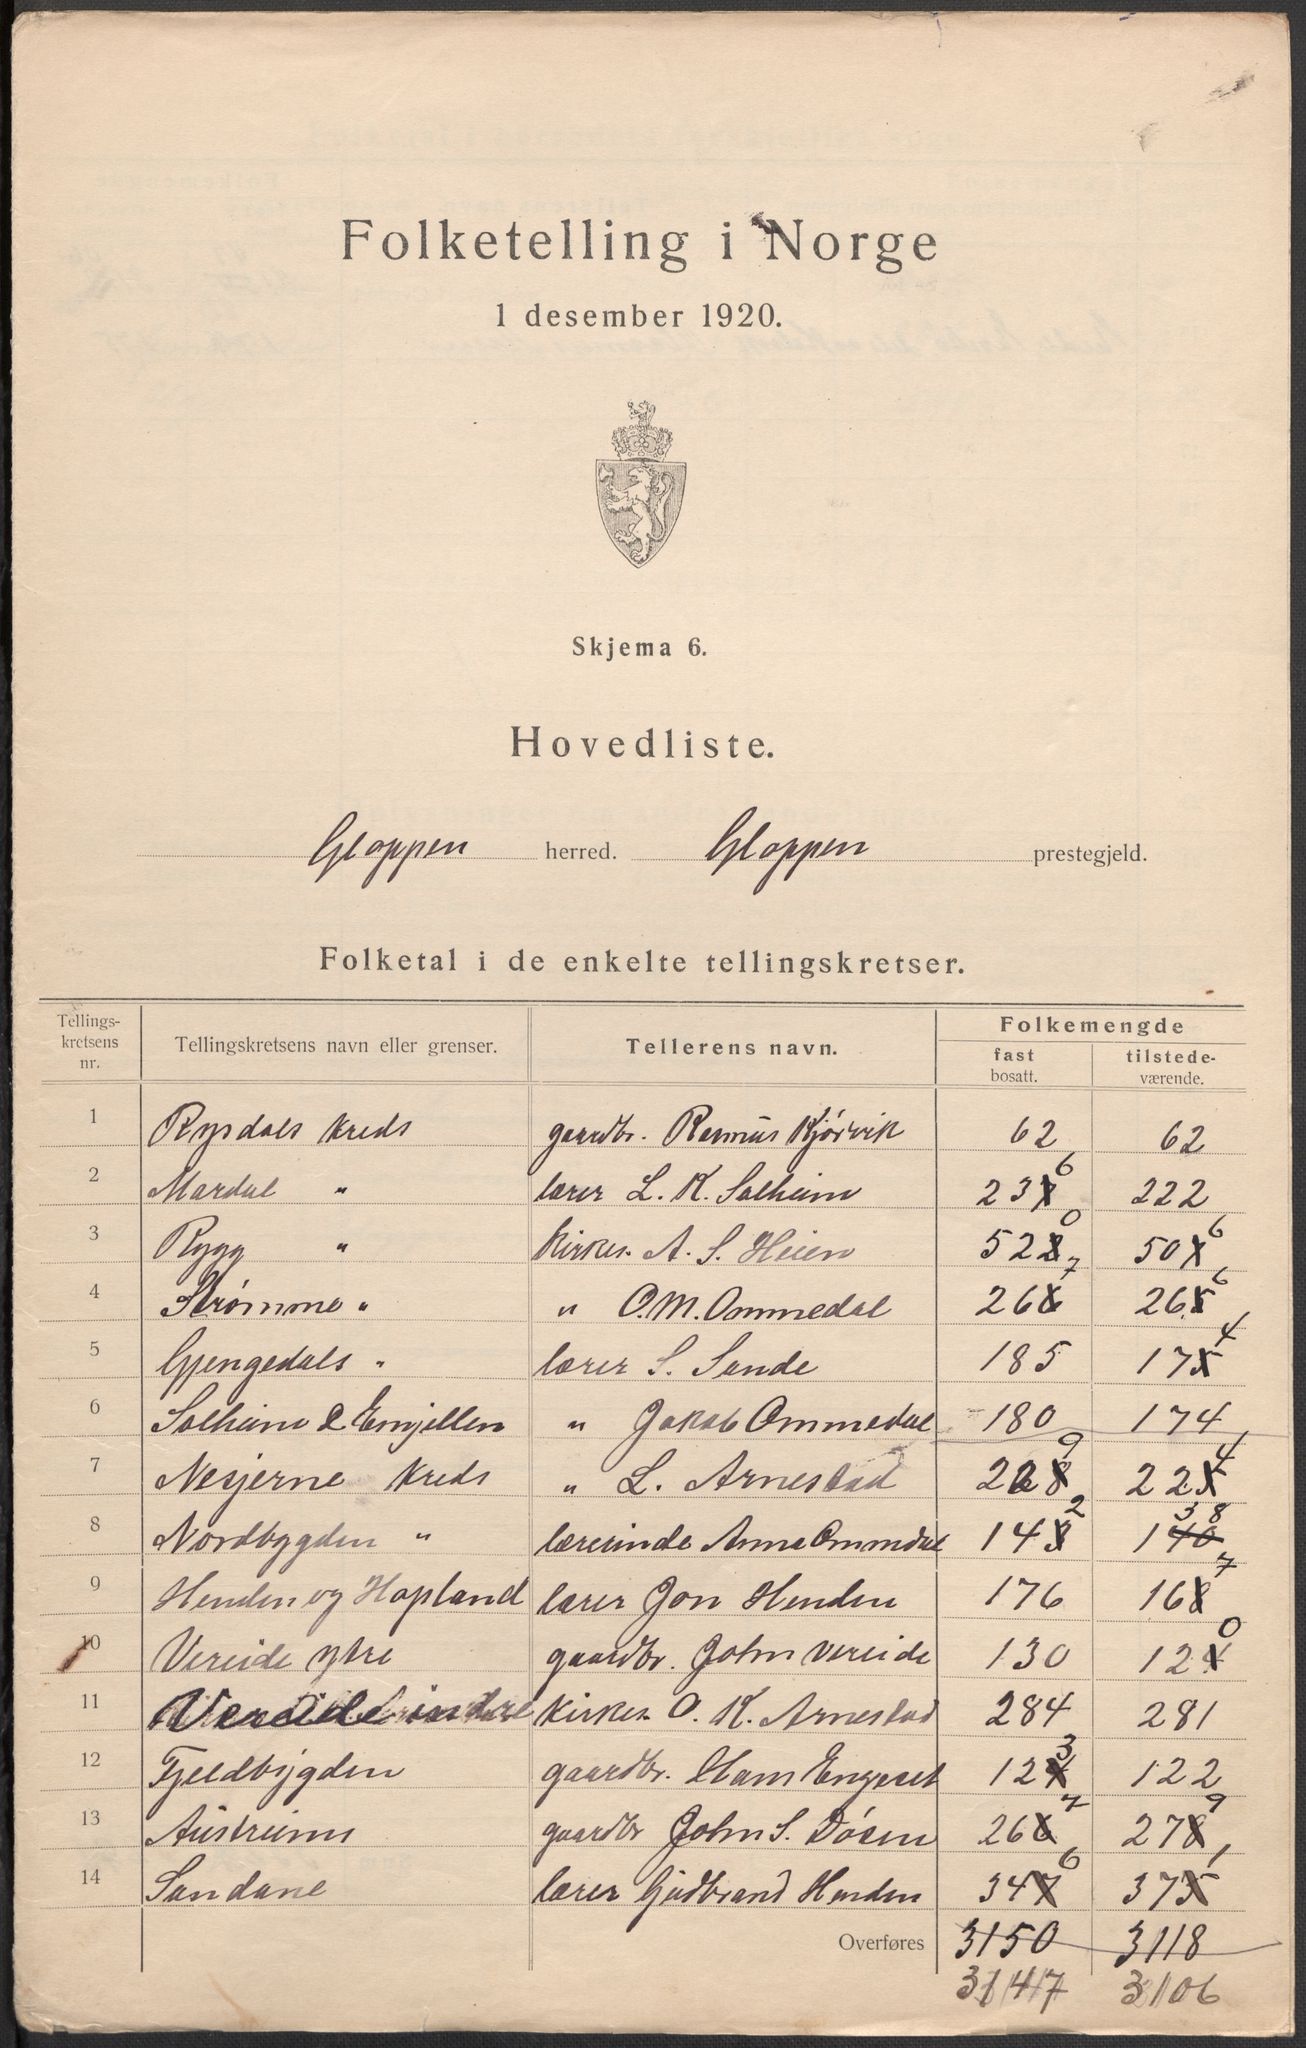 Folketelling i Norge
1 desember 1920.
Skjema 6.
Hovedliste.
Gloppen herred. Gloppen prestegjeld.
Folketal i de enkelte tellingskretser.
Tellings-kretsens nr. Tellingskretsens navn eller grenser. Tellerens navn. Folkemengde
fast bosatt. tilstede-værende.
1 Rysdals Kreds gaardbr. Rasmus Kjørvik 62 62
2 Mardal " lærer L. K. Solheim 236 222
3 Rygg " Kirkes. A. S. Heien 520 506
4 Strømme " " O. M. Ommedal 267 266
5 Gjengedals " lærer S. Sande 185 174
6 Solheim & Emjellen " Jakob Ommedal 180 174
7 Nesjerne Kreds " L. Arnestad 229 224
8 Nordbygden " lærerinde Anna Ommdal 142 138
9 Henden og Hopland lærer Jon Henden 176 167
10 Vereide ytre gaardbr. John Vereide 130 120
11 Vereide indre Kirkes. O. K. Arnestad 284 281
12 Fjeldbygden gaardbr. Hans Engeset 123 122
13 Austrums gaardbr John S. Døsen 267 279
14 Sandane lærer Gudbrand Henden 346 371
Overføres 3150 3118
3147 3106